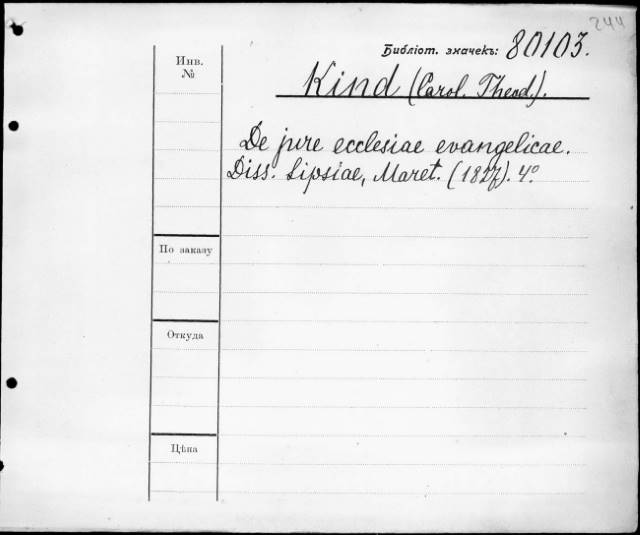 244
Библіот. значекъ: 80103.
Инв.
№
Kind (Carol. Theod.).
De jure ecclesiae evangelicae.
Diss. Lipsiae, Maret. (1827). 4°
По заказу
Откуда
Цѣна